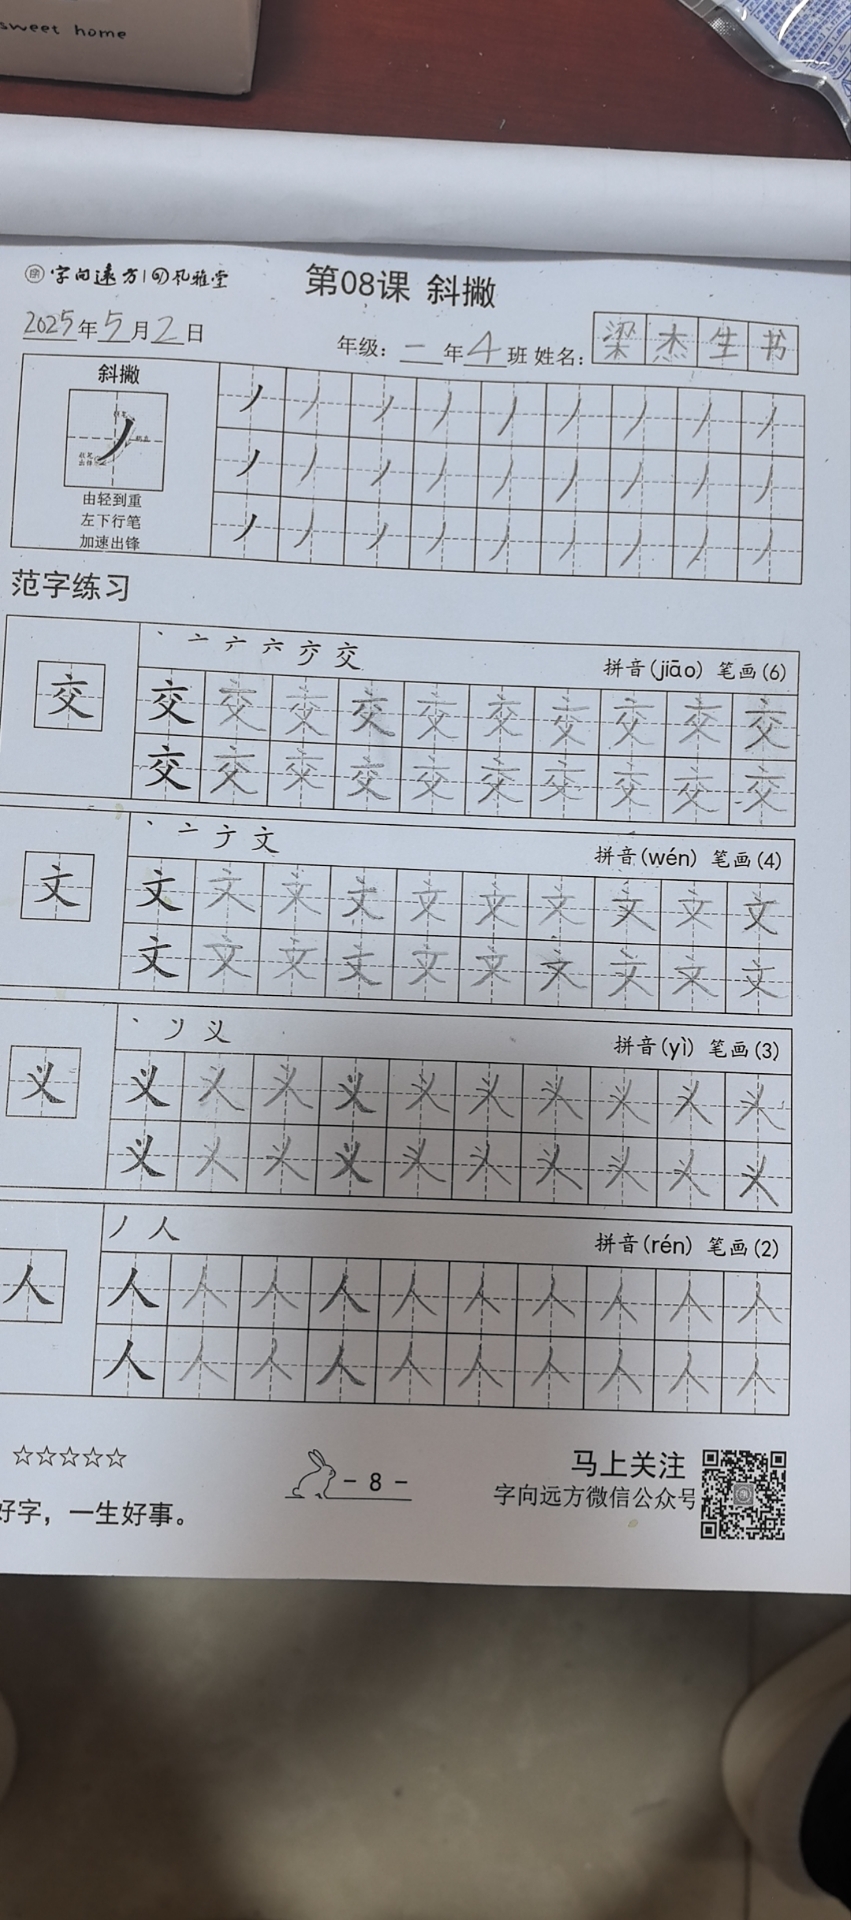 sweet home
字向远方 风雅堂
第08课 斜撇
2025年5月2日 年级：一年4班 姓名：梁杰生书
斜撇
由轻到重
左下行笔
加速出锋
范字练习
拼音(jiāo) 笔画(6)
交 交 交 交 交 交 交 交 交 交 交
交 交 交 交 交 交 交 交 交 交
拼音(wén) 笔画(4)
文 文 文 文 文 文 文 文 文 文 文
文 文 文 文 文 文 文 文 文 文
拼音(yì) 笔画(3)
义 义 义 义 义 义 义 义 义 义 义
义 义 义 义 义 义 义 义 义 义
人 拼音(rén) 笔画(2)
人 人 人 人 人 人 人 人 人 人 人
人 人 人 人 人 人 人 人 人 人
☆☆☆☆☆
- 8 -
马上关注
字向远方微信公众号
好字，一生好事。